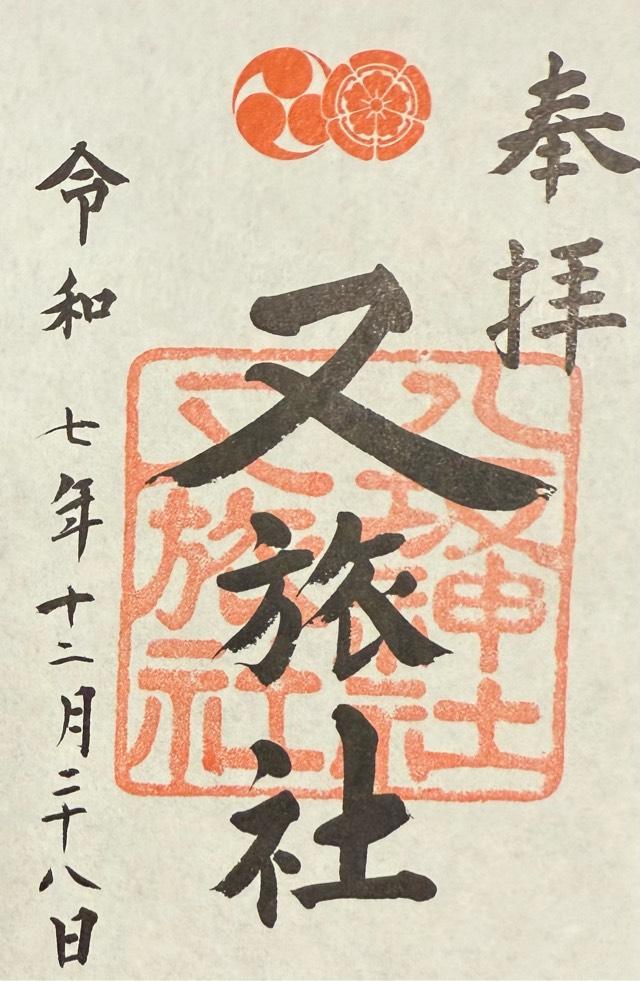 奉拝
又旅社
八坂神社
又旅社
令和七年十二月二十八日